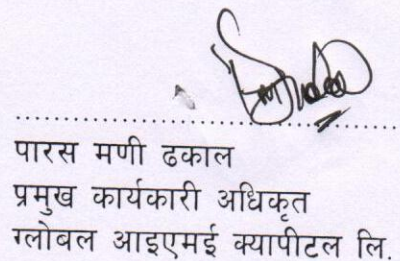 पारस मणी ढकाल
प्रमुख कार्यकारी अधिकृत
ग्लोबल आइएमई क्यापीटल लि.